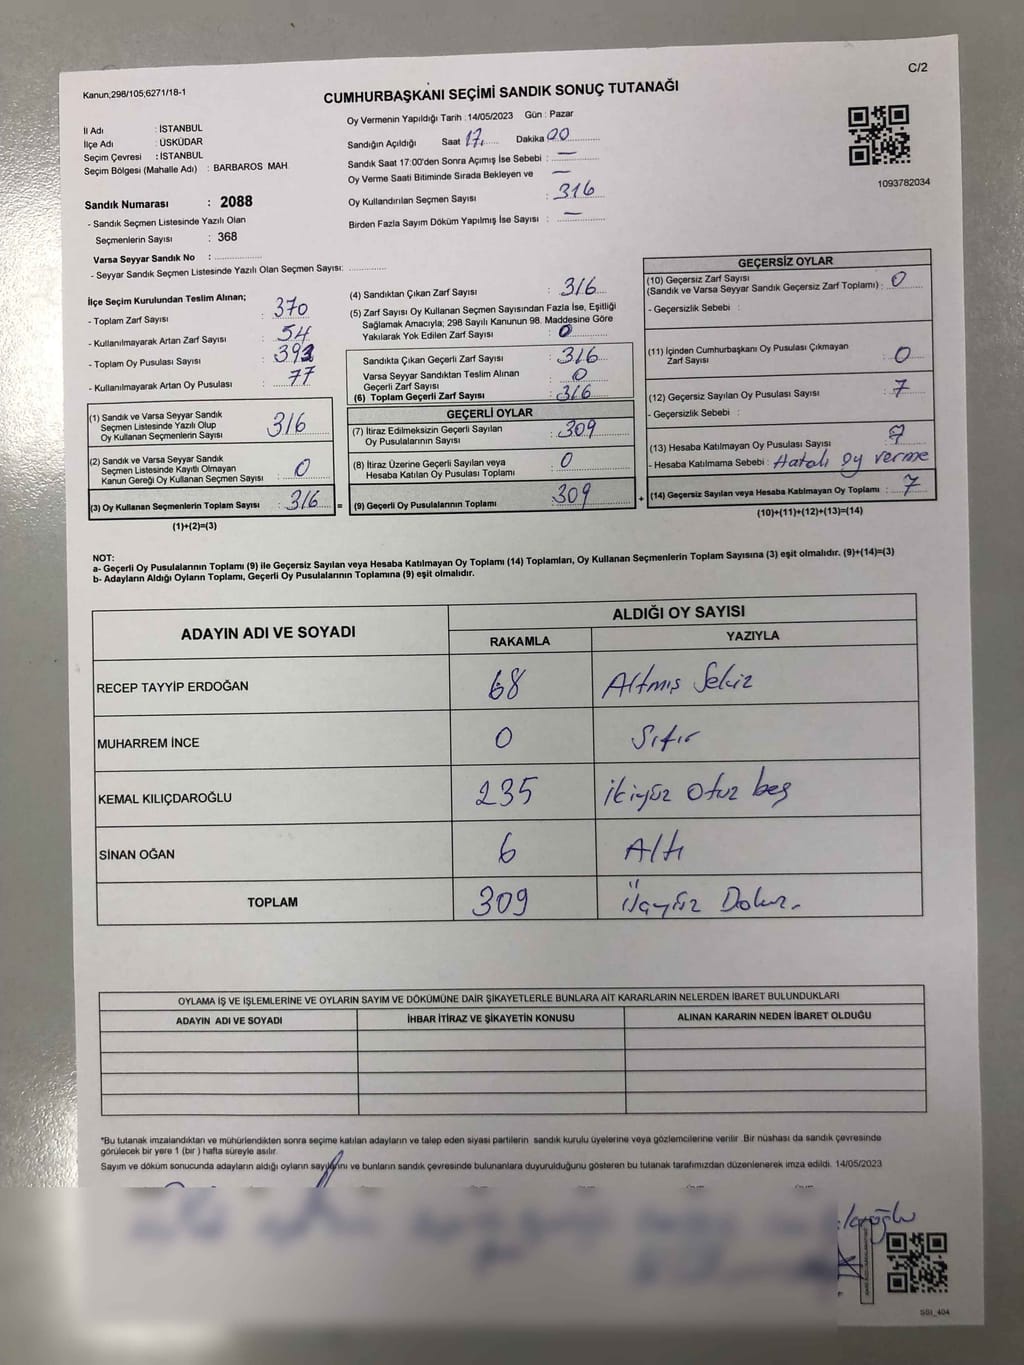 C/2
Kanun;298/105;6271/18-1
CUMHURBAŞKANI SEÇİMİ SANDIK SONUÇ TUTANAĞI
İl Adı : İSTANBUL
İlçe Adı : ÜSKÜDAR
Seçim Çevresi : İSTANBUL
Seçim Bölgesi (Mahalle Adı) : BARBAROS MAH.
Oy Vermenin Yapıldığı Tarih : 14/05/2023 Gün : Pazar
Sandığın Açıldığı Saat 17 Dakika 00
Sandık Saat 17:00'den Sonra Açımış İse Sebebi : —
Oy Verme Saati Bitiminde Sırada Bekleyen ve —
Oy Kullandırılan Seçmen Sayısı : 316
Birden Fazla Sayım Döküm Yapılmış İse Sayısı : —
1093782034
Sandık Numarası : 2088
- Sandık Seçmen Listesinde Yazılı Olan
Seçmenlerin Sayısı : 368
Varsa Seyyar Sandık No :
- Seyyar Sandık Seçmen Listesinde Yazılı Olan Seçmen Sayısı:
İlçe Seçim Kurulundan Teslim Alınan;
- Toplam Zarf Sayısı : 370
- Kullanılmayarak Artan Zarf Sayısı : 54
- Toplam Oy Pusulası Sayısı :
- Kullanılmayarak Artan Oy Pusulası : 77
(1) Sandık ve Varsa Seyyar Sandık
Seçmen Listesinde Yazılı Olup
Oy Kullanan Seçmenlerin Sayısı 316
(2) Sandık ve Varsa Seyyar Sandık
Seçmen Listesinde Kayıtlı Olmayan
Kanun Gereği Oy Kullanan Seçmen Sayısı : 0
(3) Oy Kullanan Seçmenlerin Toplam Sayısı : 316 =
(1)+(2)=(3)
(4) Sandıktan Çıkan Zarf Sayısı : 316
(5) Zarf Sayısı Oy Kullanan Seçmen Sayısından Fazla İse, Eşitliği
Sağlamak Amacıyla; 298 Sayılı Kanunun 98. Maddesine Göre
Yakılarak Yok Edilen Zarf Sayısı : 0
Sandıkta Çıkan Geçerli Zarf Sayısı : 316
Varsa Seyyar Sandıktan Teslim Alınan
Geçerli Zarf Sayısı : 0
(6) Toplam Geçerli Zarf Sayısı : 316
GEÇERLİ OYLAR
(7) İtiraz Edilmeksizin Geçerli Sayılan
Oy Pusulalarının Sayısı : 309
(8) İtiraz Üzerine Geçerli Sayılan veya
Hesaba Katılan Oy Pusulası Toplamı : 0
(9) Geçerli Oy Pusulalarının Toplamı : 309 +
GEÇERSİZ OYLAR
(10) Geçersiz Zarf Sayısı
(Sandık ve Varsa Seyyar Sandık Geçersiz Zarf Toplamı) : 0
- Geçersizlik Sebebi :
(11) İçinden Cumhurbaşkanı Oy Pusulası Çıkmayan
Zarf Sayısı : 0
(12) Geçersiz Sayılan Oy Pusulası Sayısı : 7
- Geçersizlik Sebebi :
(13) Hesaba Katılmayan Oy Pusulası Sayısı :
- Hesaba Katılmama Sebebi : Hatalı oy verme
(14) Geçersiz Sayılan veya Hesaba Katılmayan Oy Toplamı : 7
(10)+(11)+(12)+(13)=(14)
NOT:
a- Geçerli Oy Pusulalarının Toplamı (9) ile Geçersiz Sayılan veya Hesaba Katılmayan Oy Toplamı (14) Toplamları, Oy Kullanan Seçmenlerin Toplam Sayısına (3) eşit olmalıdır. (9)+(14)=(3)
b- Adayların Aldığı Oyların Toplamı, Geçerli Oy Pusulalarının Toplamına (9) eşit olmalıdır.
ADAYIN ADI VE SOYADI ALDIĞI OY SAYISI
RAKAMLA YAZIYLA
RECEP TAYYİP ERDOĞAN 68 Altmış Sekiz
MUHARREM İNCE 0 Sıfır
KEMAL KILIÇDAROĞLU 235 ikiyüz otuz beş
SİNAN OĞAN 6 Altı
TOPLAM 309 Üçyüz Dokuz.
OYLAMA İŞ VE İŞLEMLERİNE VE OYLARIN SAYIM VE DÖKÜMÜNE DAİR ŞİKAYETLERLE BUNLARA AİT KARARLARIN NELERDEN İBARET BULUNDUKLARI
ADAYIN ADI VE SOYADI İHBAR İTİRAZ VE ŞİKAYETİN KONUSU ALINAN KARARIN NEDEN İBARET OLDUĞU
*Bu tutanak imzalandıktan ve mühürlendikten sonra seçime katılan adayların ve talep eden siyasi partilerin sandık kurulu üyelerine veya gözlemcilerine verilir. Bir nüshası da sandık çevresinde
görülecek bir yere 1 (bir ) hafta süreyle asılır.
Sayım ve döküm sonucunda adayların aldığı oyların sayılarını ve bunların sandık çevresinde bulunanlara duyurulduğunu gösteren bu tutanak tarafımızdan düzenlenerek imza edildi. 14/05/2023